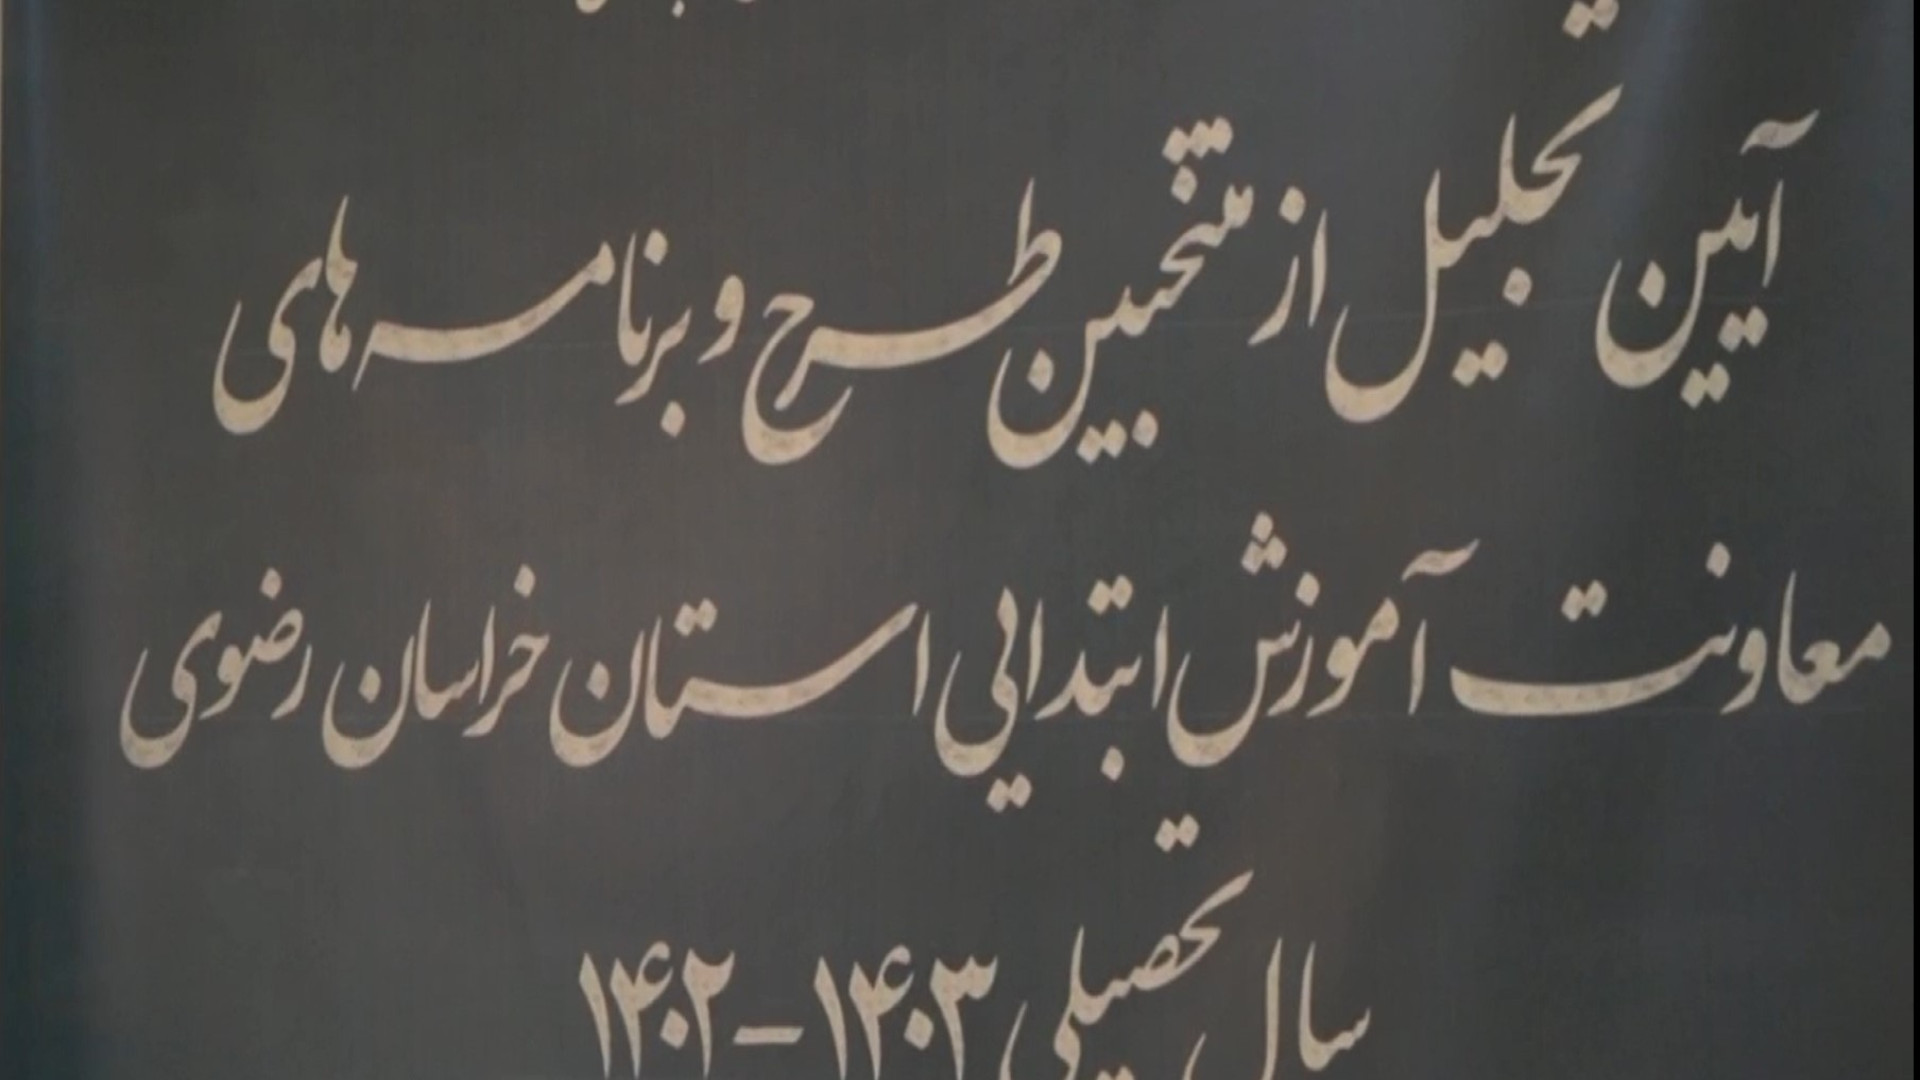 آیین تجلیل از منتخبین طرح و برنامه های
معاونت آموزش ابتدایی استان خراسان رضوی
سال تحصیلی ۱۴۰۳-۱۴۰۲